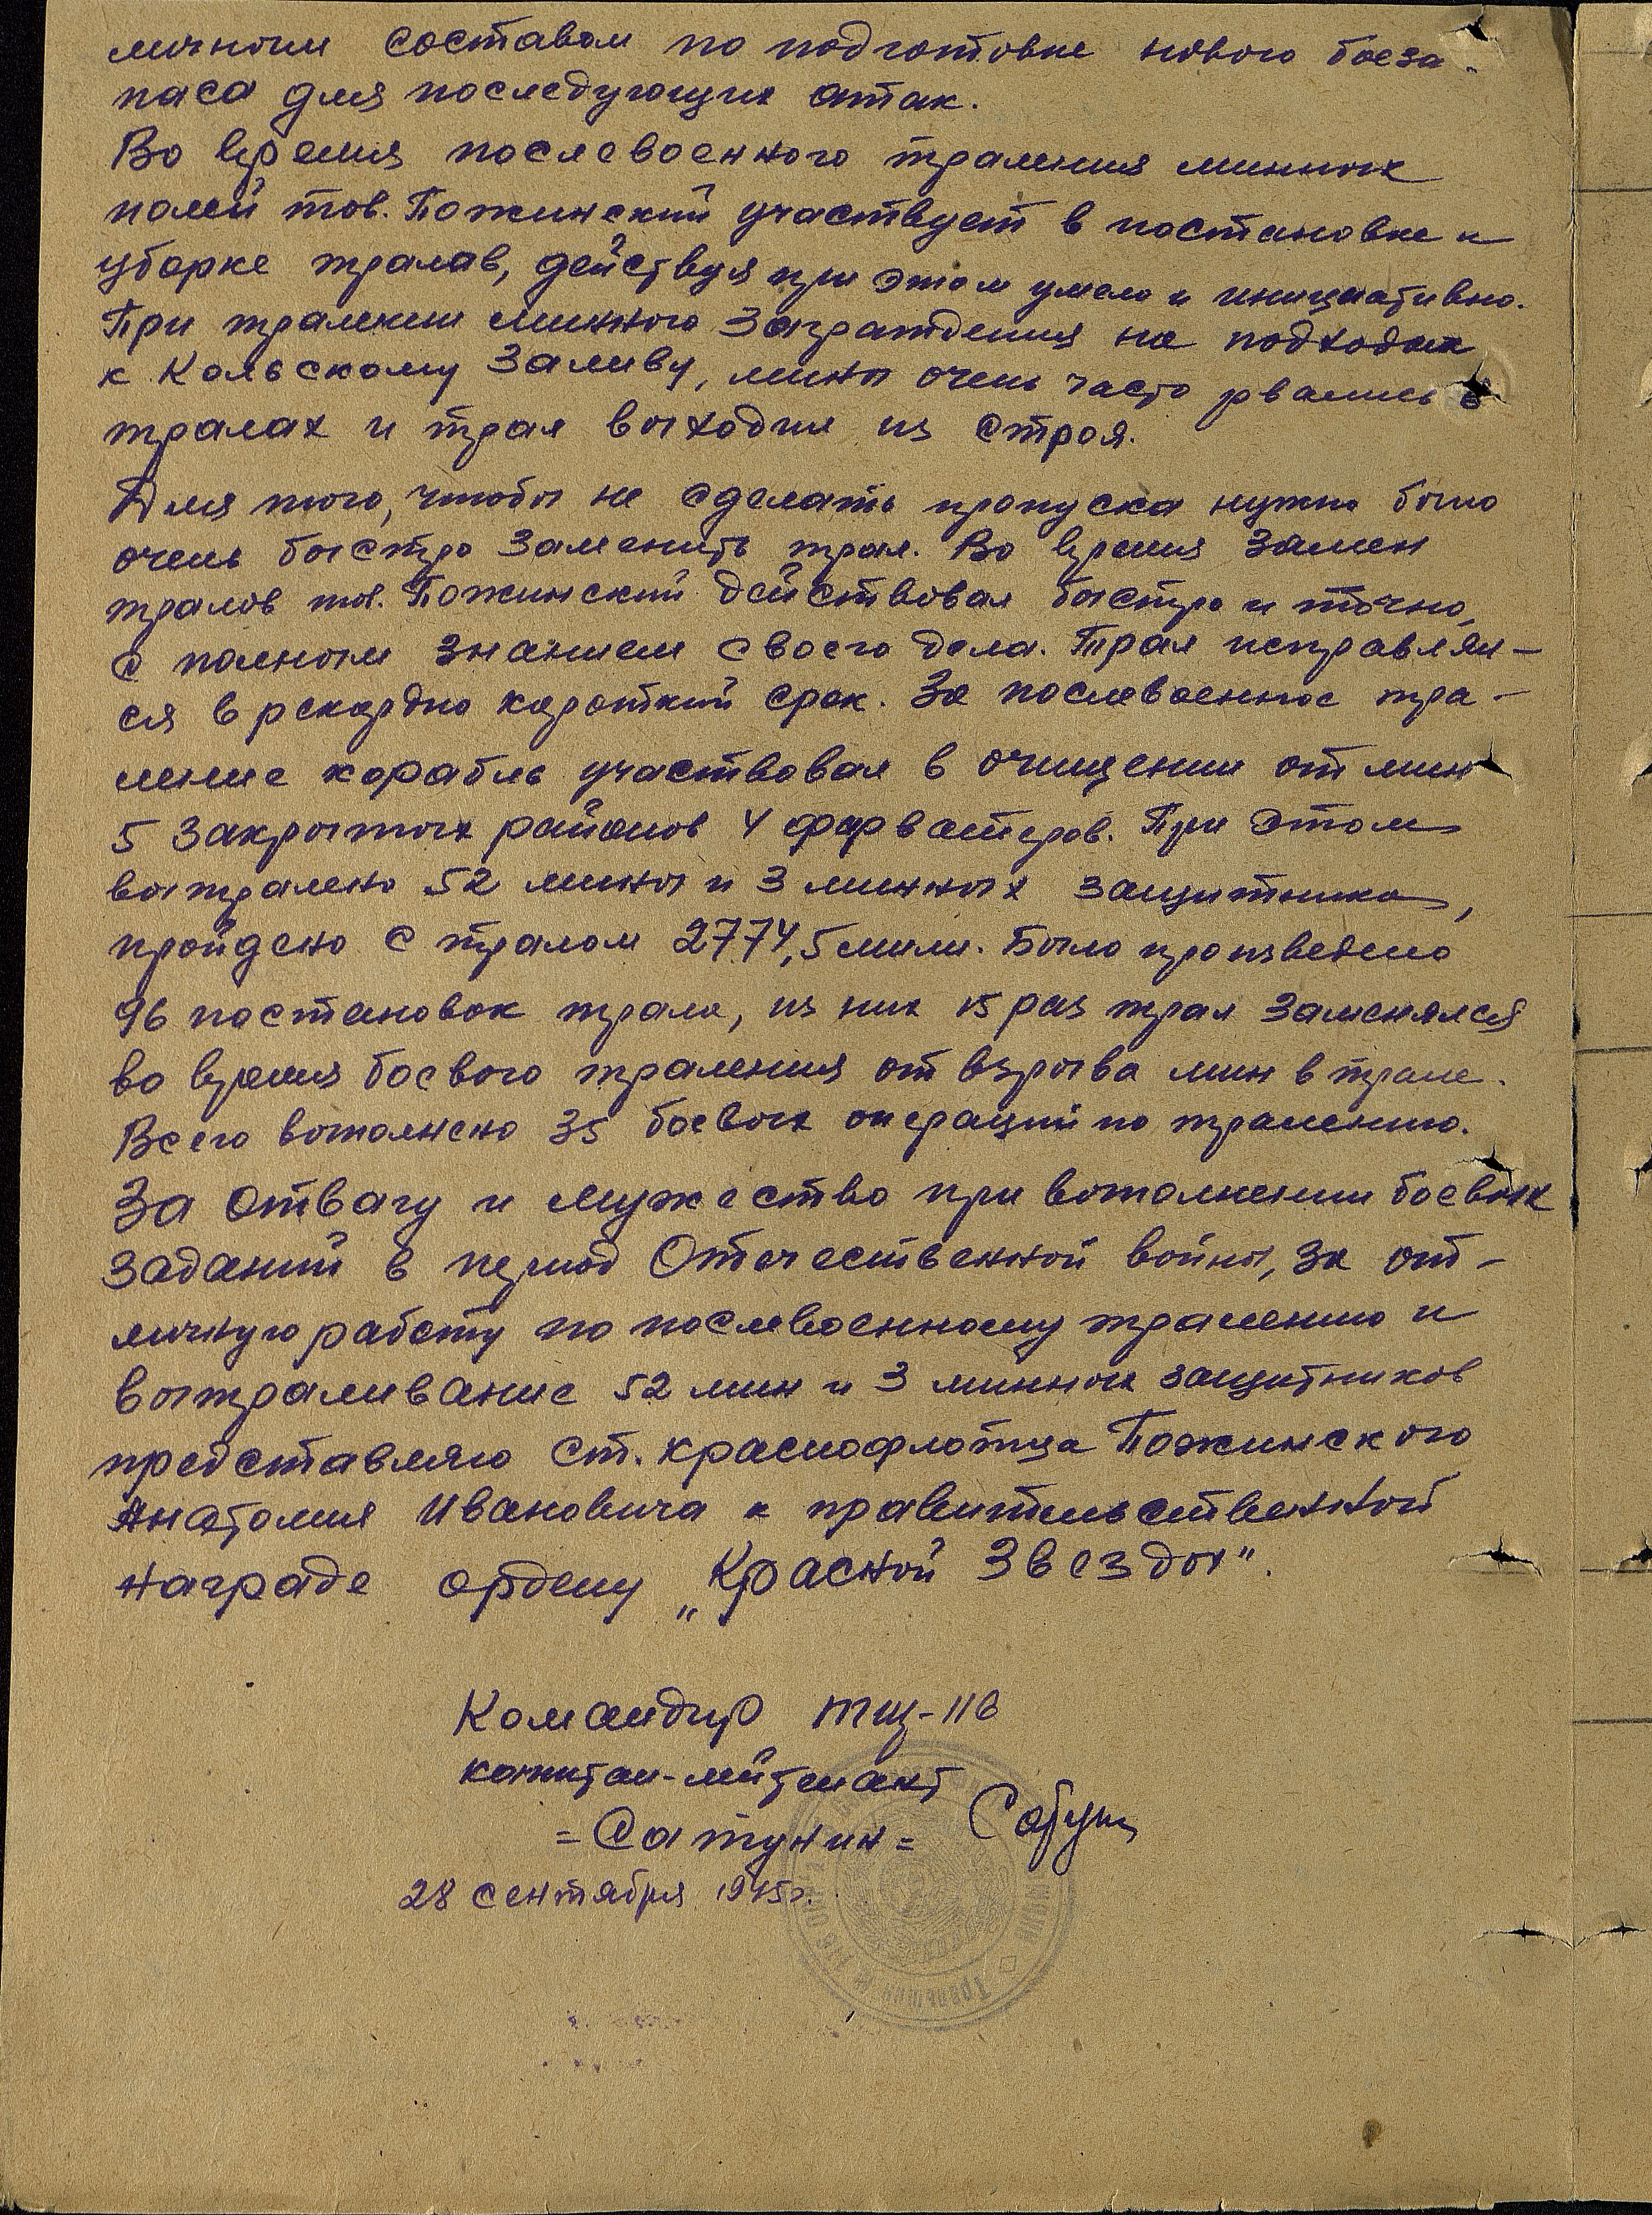 личным составом по подготовке нового боеза-
паса для последующих атак.
Во время послевоенного траления минных
полей тов. Пожинский участвует в постановке и
уборке тралав, действуя при этом умело и инициативно.
При тралении минного заграждения на подходах
к Кольскому заливу, мины очень часто рвались в
тралах и трал выходил из строя.
Для того, чтобы не сделать пропуска нужно было
очень быстро заменить трал. Во время замен
тралов тов. Пожинский действовал быстро и точно,
с полным знанием своего дела. Трал исправлял-
ся в рекордно короткий срок. За послевоенное тра-
ление корабль участвовал в очищении от мин
5 закрытых районов 4 фарватеров. При этом
вытралено 52 мины и 3 минных защитника,
пройдено с тралом 2774,5 мили. Было произведено
96 постановок трала, из них 15 раз трал заменялся
во время боевого траления от взрыва мин в трале.
Всего выполнено 35 боевых операций по тралению.
За отвагу и мужество при выполнении боевых
заданий в период Отечественной войны, за от-
личную работу по послевоенному тралению и
вытраливание 52 мин и 3 минных защитников
представляю ст. краснофлотца Пожинского
Анатолия Ивановича к правительственной
награде ордену „Красной Звезды".
Командир тщ-116
капитан-лейтенант
=Сатунин=
28 сентября 1945г.